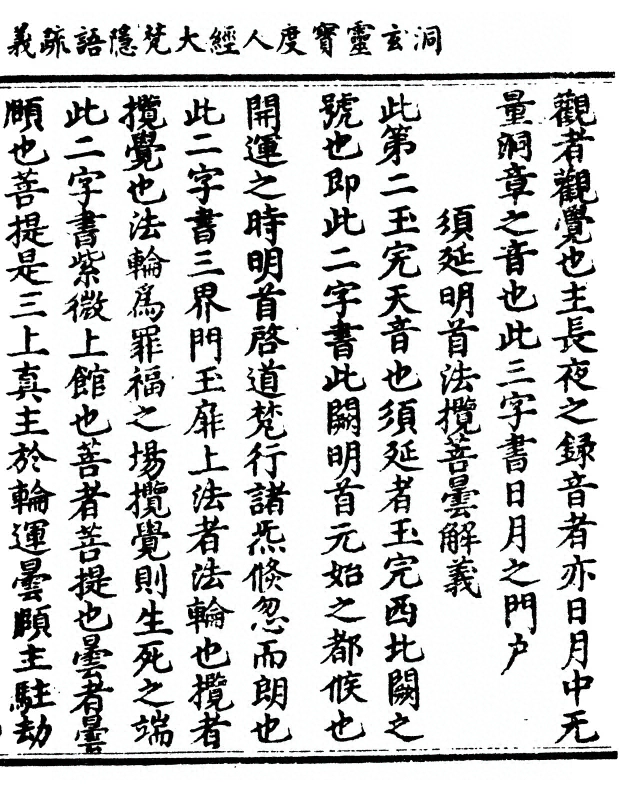 洞玄靈寶度人經大梵隱語疏義
觀者觀覺也主長夜之録音者亦日月中无
量洞章之音也此三字書日月之門戶
須延明首法攬菩曇解義
此第二玉完天音也須延者玉完西北闕之
號也即此二字書此闕明首元始之都候也
開運之時明首啓道梵行諸炁倏忽而朗也
此二字書三界門玉扉上法者法輪也攬者
攬覺也法輪爲罪福之場攬覺則生死之端
此二字書紫微上館也菩者菩提也曇者曇
頋也菩提是三上真主於輪運曇頋主駐劫